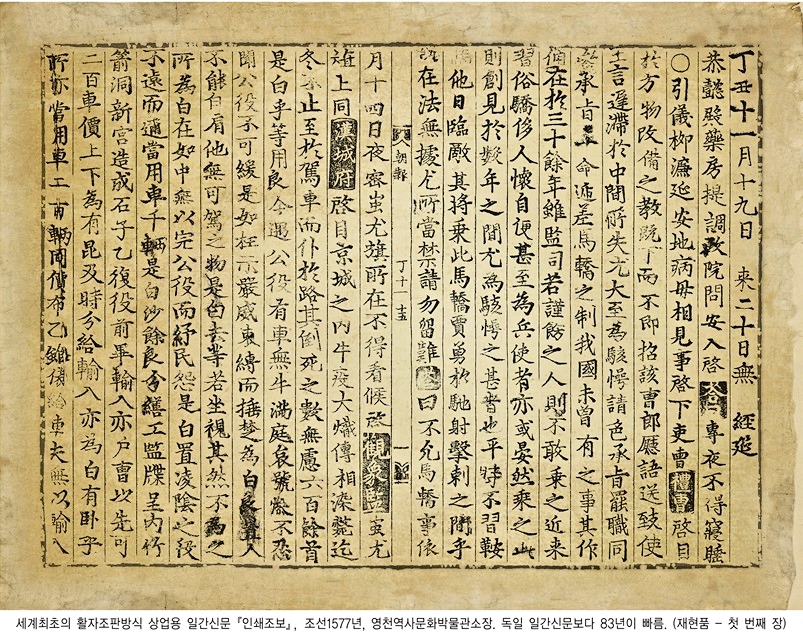 丁丑十一月十九日 來二十日無 經筵
恭懿殿藥房提調政院問安入啓答曰專夜不得寢睡
○引儀柳濂延安地病母相見事啓下吏曹禮曹啓目
於方物改備之教既下而不即招該曹郎廳語送致使
王言遲滯於中間所失尤大至爲駭愕請色承旨罷職同
參承旨 命遞差馬轎之制我國未曾有之事其作
俑在於三十餘年雖監司若謹飭之人則不敢乘之近來
習俗驕侈人懷自便甚至爲兵使者亦或晏然乘之此
則創見於數年之間尤爲駭愕之甚者也平時不習鞍
馬他日臨敵其將乘此馬轎賈勇於馳射擊刺之間乎
在法無據尤所當禁請勿留難答曰不允馬轎事依
朝報 丁十一 一
月十四日夜密蚩尤旗所在不得看候啓觀象監蚩尤
旗上同漢城府啓目京城之內牛疫大熾傳相染斃迄
冬不止至於駕車而仆於路其倒死之數無慮六百餘首
是白乎等用良 今遇公役有車無牛滿庭哀號不忍
聞公役不可緩是如枉示嚴威束縛而捶楚爲白良置人
不能自有他無可駕之物是白去等若坐視其然不爲之
所爲白在如中無以完公役而紓民怨是白置凌陰之役
不遠而適當用車千輛是白沙餘良分繕工監牒呈內竹
箭洞新宮造成石子乙復役前畢輸入亦戶曹以先可
二百車價上下爲有昆及時分給輸入亦爲白有臥乎
所亦當用車二百輛同價布乙雖優給車夫無以輸入
세계최초의 활자조판방식 상업용 일간신문 『인쇄조보』, 조선1577년, 영천역사문화박물관소장. 독일 일간신문보다 83년이 빠름. (재현품 - 첫 번째 장)